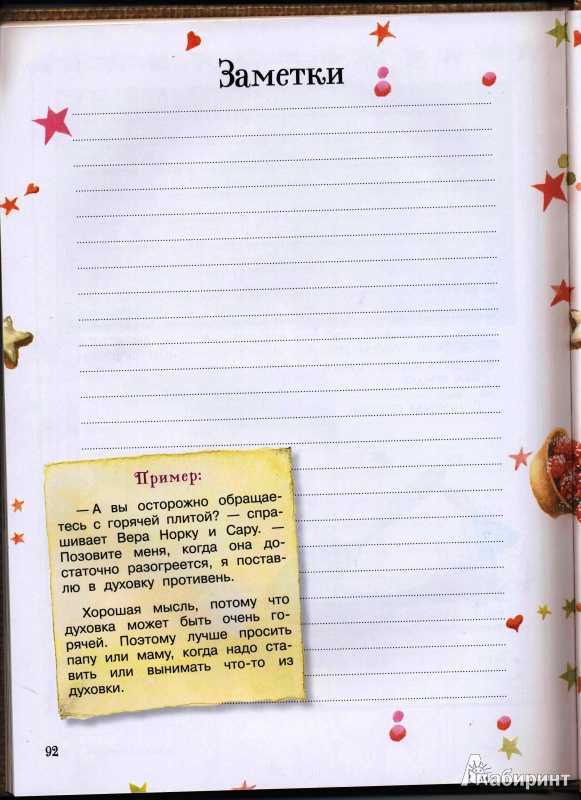 Заметки
Пример:
— А вы осторожно обращае-
тесь с горячей плитой? — спра-
шивает Вера Норку и Сару. —
Позовите меня, когда она до-
статочно разогреется, я постав-
лю в духовку противень.
Хорошая мысль, потому что
духовка может быть очень го-
рячей. Поэтому лучше просить
папу или маму, когда надо ста-
вить или вынимать что-то из
духовки.
92
Лабиринт